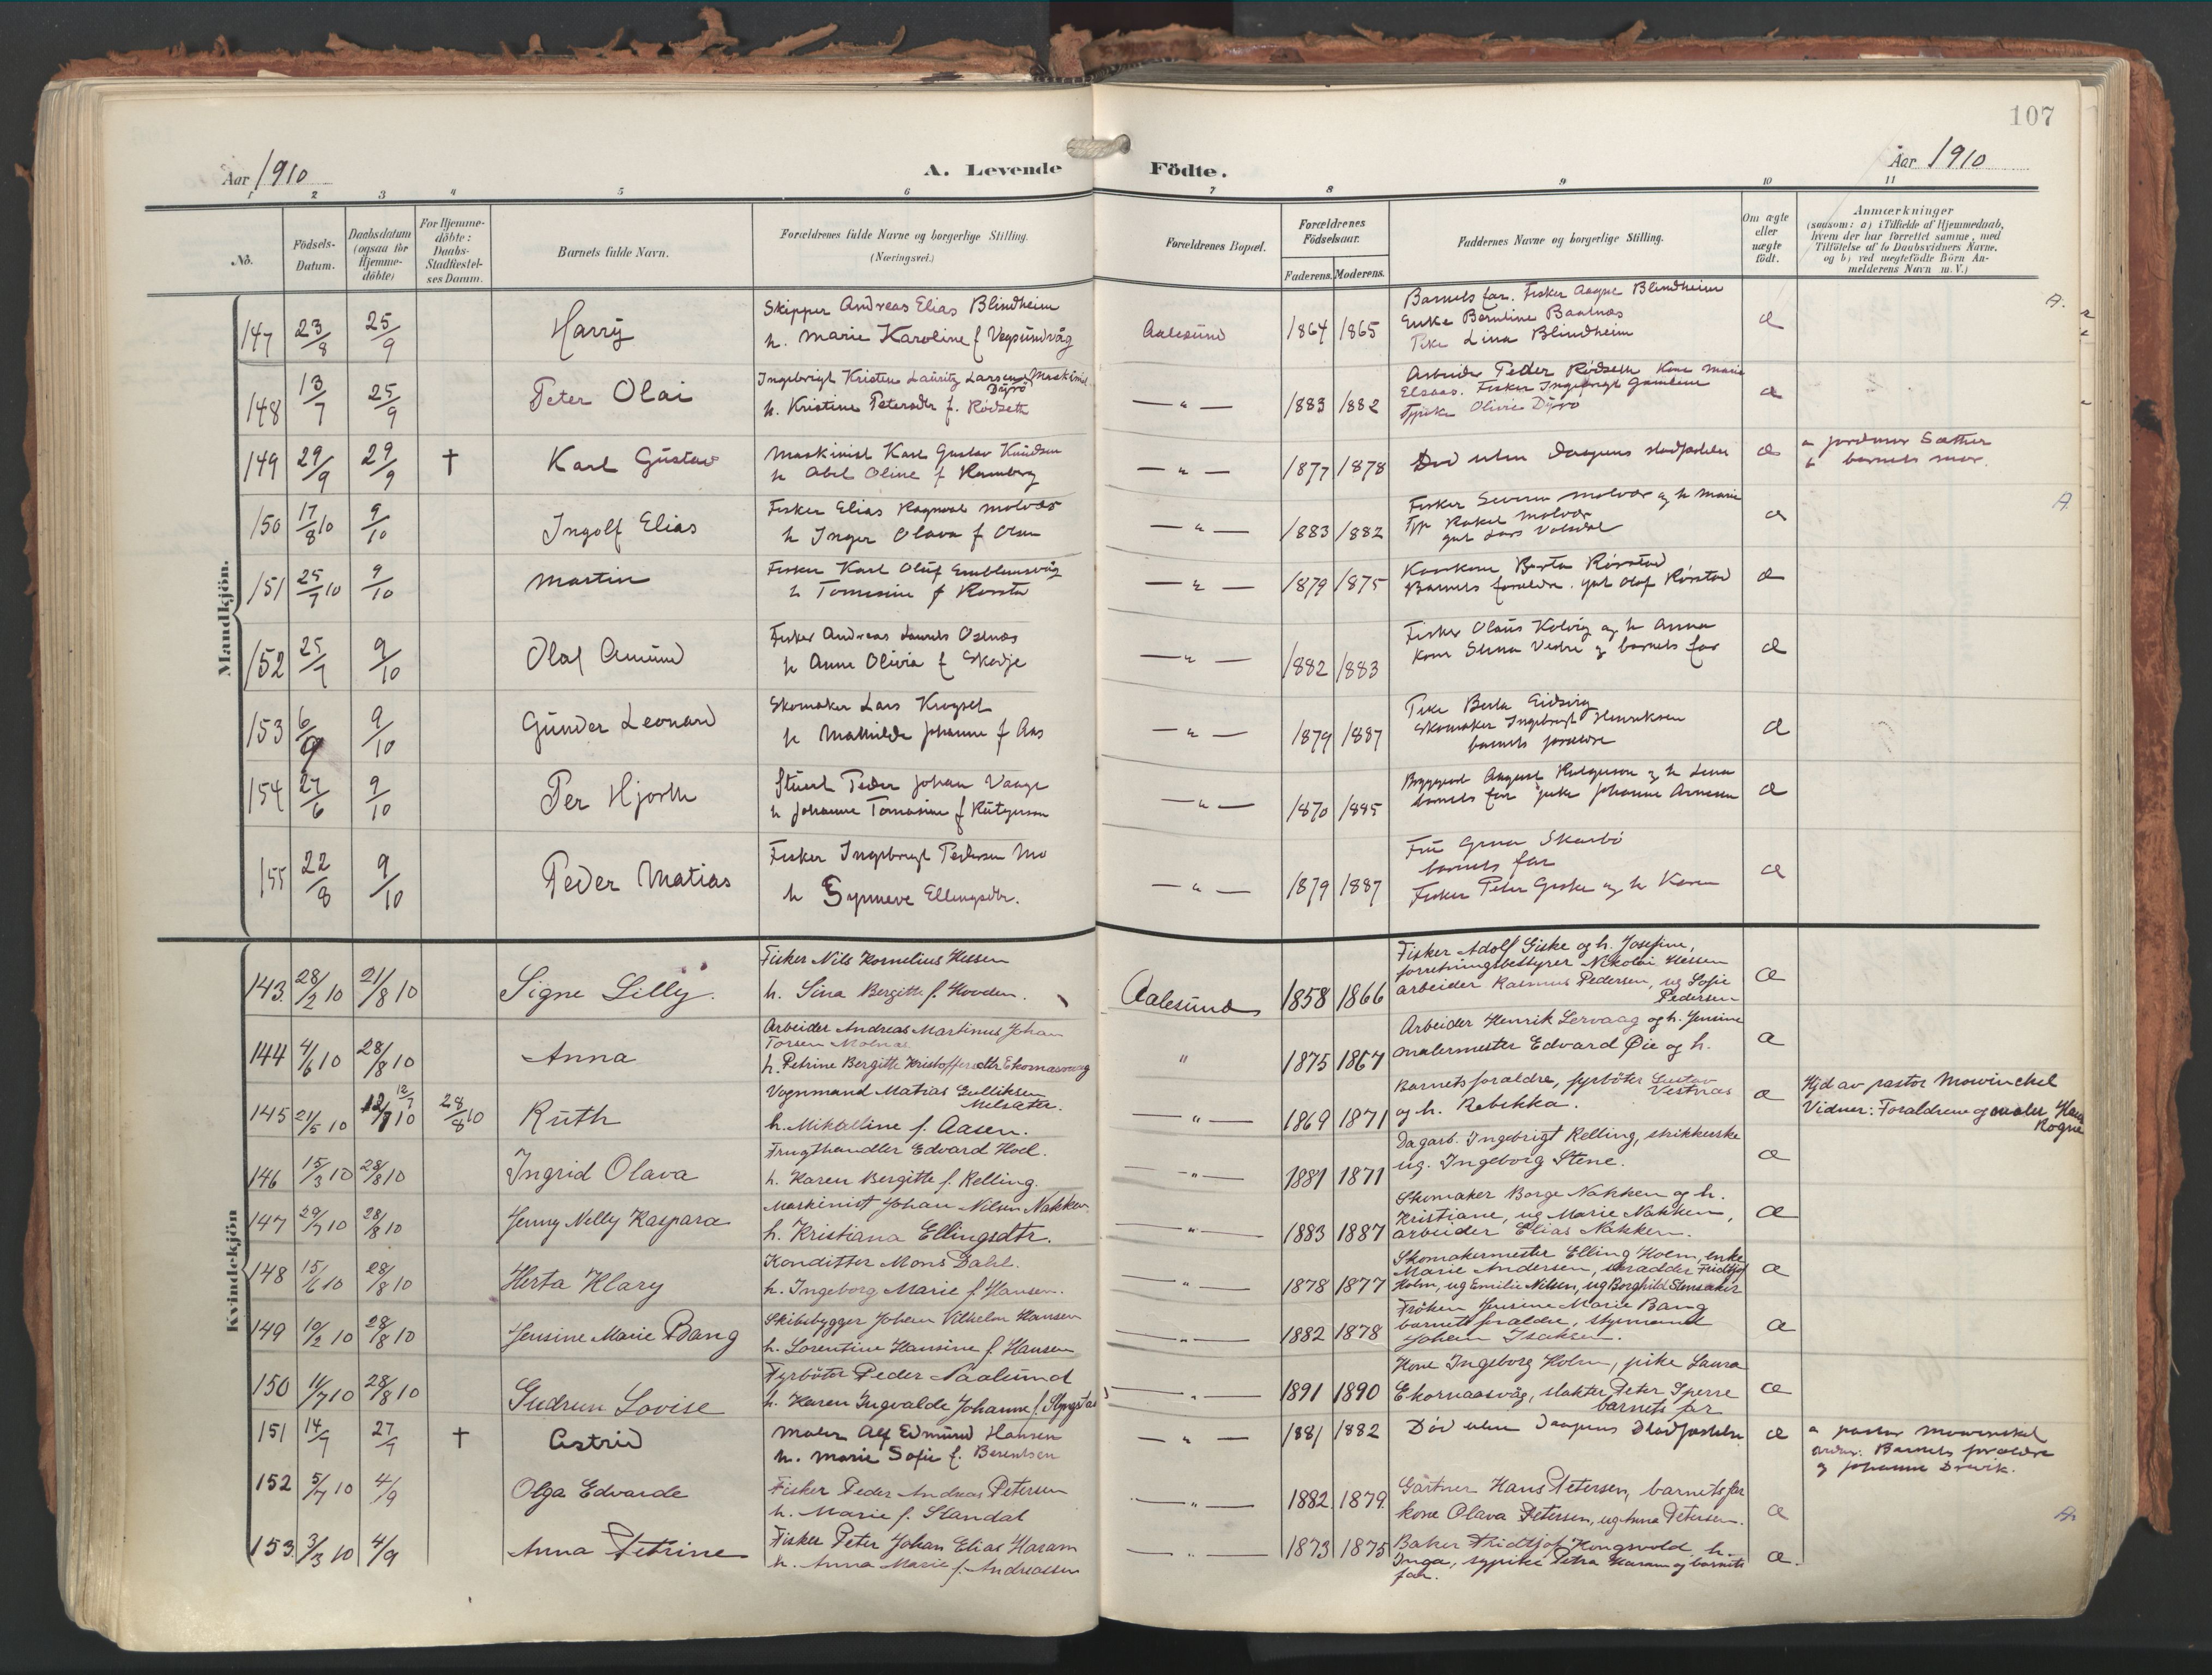 107
Aar 1910
A. Levende Födte.
Aar 1910
1 2 3 4 5 6 7 8 9 10 11
No.
Födsels-Datum.
Daabsdatum (ogsaa for Hjemme-döbte)
For Hjemme-döbte: Daabs-Stadfæstel-ses Datum.
Barnets fulde Navn.
Forældrenes fulde Navne og borgerlige Stilling.
(Næringsvei.)
Forældrenes Bopæl.
Forældrenes Födselsaar.
Faderens. Moderens.
Faddernes Navne og borgerlige Stilling.
Om ægte eller uægte født.
Anmærkninger
(saasom: a) i Tilfælde af Hjemmedaab, hvem der har forrettet samme, med Tilföielse af to Daabsvidners Navne, og b) ved uegtefödte Börn An-melderens Navn m. V.)
Mandkjön.
147 23/8 25/9 Harry Skipper Andreas Elias Blindheim Aalesund 1864 1865 Barnets far. Fisker Aagne Blindheim
h. Marie Karoline f Vegsundvåg Enke Berntine Baalnæs
Pike Lina Blindheim
148 13/7 25/9 Peter Olai Ingebrigt Kristen Lauritz Larsen Dyrö Maskinist 1883 1882 Arbeider Peder Rødseth Kone Marie
h. Kristine Petersdtr f. Rødseth Fisker Ingebrigt
Olivie Dyrö
149 29/9 29/9 † Karl Gustav Maskinist Karl Gustav Knudsen 1877 1878 Død uten Daapens stadfæstelse a jordmor Sæther
h Abel Oline f Ramberg b barnets mor.
150 17/8 10 9/10 Ingolf Elias Fisker Elias Ragnvald Molvær 1883 1882 Fisker Severin Molvær og h Marie
h Inger Olava f Olsen Rakel Molvær
gut Lars
151 25/7 10 9/10 Martin Fisker Karl Oluf Emblemsvåg 1879 1875 Berta Rørstad
h Tomasine f Rørstad Barnets forældre. gut Olaf Rørstad
152 25/7 9/10 Olaf Amund Fisker Andreas Laurits Osnes 1882 1883 Fisker Olaus Kolvig og h Anna
h Anne Olivia f Skodje Kone og barnets far
153 6/9 9/10 Gunder Leonard Skomaker Lars Krogset 1879 1887 Pike Berta Eidsvig
h Mathilde Johanne f Aas Skomaker Ingebrigt Henriksen
barnets forældre
154 27/6 9/10 Per Hjorth Stuert Peder Johan Vaage 1870 1885 August og h Lina
h Johanne Tomasine f barnets far pike Johanne Arnesen
155 22/8 9/10 Peder Matias Fisker Ingebrigt Pedersen Mo 1879 1887 Fru Skarbö
h Synneve Ellingsdtr. barnets far
Fisker Peter Giske og h Karen
Kvindekjön
143. 28/2 10 21/8 10 Signe Lilly. Fisker Nils Kornelius Hessen Aalesund 1858 1866 Fisker Adolf Giske og h. Josefine,
h. Sina Bergitte f. Hovden. forretningsbestyrer Nikolai Hessen
arbeider Rasmus Pedersen, ug Sofie Pedersen
144 4/6 10 28/8 10 Anna Arbeider Andreas Martinus Johan Torsen Molnæs " 1875 1867 Arbeider Henrik Lervaag og h. Jensine
h. Petrine Bergitte Kristoffersdtr Ekornaasvaag malermester Edvard Øie og h.
145 21/5 10 12/7 10 12/7 28/8 10 Ruth Vognmand Matias Gulliksen Melsæter. " 1869 1871 Barnets forældre, fyrböter Gustav Vestnæs Hjd av pastor Mowinckel
h. Mikaline f. Aasen. og h. Rebekka. Vidner: Forældrene og maler Hans Rogne
146 15/3 10 28/8 10 Ingrid Olava Frugthandler Edvard Hoel. " 1881 1871 Dagarb. Ingebrigt Relling, strikkerske
h. Karen Bergitte f. Relling. ug. Ingeborg Stene.
147 29/7 10 28/8 10 Jenny Nelly Kaspara Maskinist Johan Nilsen Nakken. " 1883 1887 Skomaker Borge Nakken og h.
h. Kristiana Ellingsdtr. Kristiane, ug Marie Nakken,
arbeider Elias Nakken.
148 15/6 10 28/8 10 Herta Klary Konditter Mons Dahl. " 1878 1877 Skomakermester Elling Holm, enke
h. Ingeborg Marie f. Hansen. Marie Andersen, skrædder Fridtjof
Holm, ug Emilie Nilsen, ug Borghild Stensaker
149 10/2 10 28/8 10 Jensine Marie Bang Skibsbygger Johan Vilhelm Hansen " 1882 1878 Fröken Jensine Marie Bang
h. Lorentine Hansine f. Hansen barnets forældre, styrmand
Johan Isaksen.
150 11/7 10 28/8 10 Gudrun Lovise Fyrböter Peder Naalsund " 1891 1890 Kone Ingeborg Holm, pike Laura
h. Karen Ingvalde Johanne f. Slyngstad Ekornaasvåg, slakter Peter Sperre
barnets far
151 14/7 27/7 † Astrid Maler Alf Edmund Hansen " 1881 1882 Död uten Daapens Stadfæstelse a pastor Mowinckel
h. Marie Sofie f. Berentsen Barnets forældre
og Johanne Drevik.
152 5/7 10 4/9 Olga Edvarde Fisker Peder Andreas Petersen " 1882 1879 Gartner Hans Petersen, barnets far
h. Marie f. Standal kone Olava Petersen, ug Anna Petersen.
153. 3/3 10 4/9 Anna Petrine Fisker Peter Johan Elias Haram " 1873 1875 Baker Fridtjof Kongsvold h.
h. Anna Marie f. Andreassen Inga, sypike Petra Haram og barnets
far.